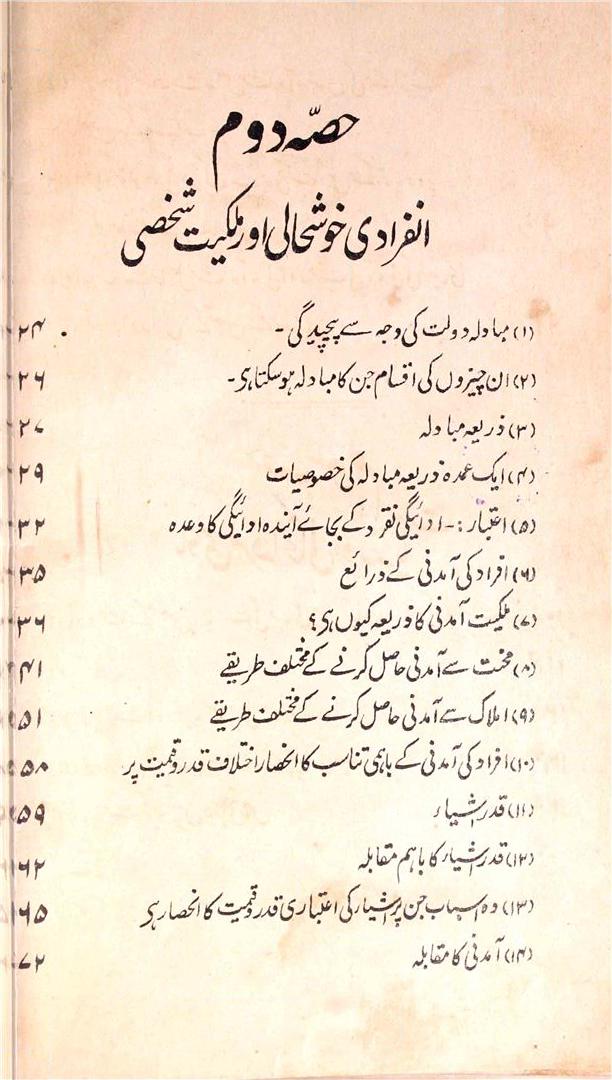 حصّہ دوم
انفرادی خوشحالی اور ملکیت شخصی
(۱) مبادلہ دولت کی وجہ سے پیچیدگی - ۲۴
(۲) ان چیزوں کی اقسام جن کا مبادلہ ہو سکتا ہی - ۲۶
(۳) ذریعہ مبادلہ ۲۷
(۴) ایک عمدہ ذریعہ مبادلہ کی خصوصیات ۲۹
(۵) اعتبار :- ادائیگی نقد کے بجائے آیندہ ادائیگی کا وعدہ ۳۲
(۶) افراد کی آمدنی کے ذرائع ۳۵
(۷) ملکیت آمدنی کا ذریعہ کیوں ہی؟ ۳۶
(۸) محنت سے آمدنی حاصل کرنے کے مختلف طریقے ۴۱
(۹) املاک سے آمدنی حاصل کرنے کے مختلف طریقے ۵۱
(۱۰) افراد کی آمدنی کے باہمی تناسب کا انحصار اختلاف قدر و قیمت پر ۵۸
(۱۱) قدر اشیاء ۵۹
(۱۲) قدر اشیاء کا باہم مقابلہ ۶۲
(۱۳) وہ اسباب جن پر اشیاء کی اعتباری قدر و قیمت کا انحصار ہی ۶۵
(۱۴) آمدنی کا مقابلہ ۷۲